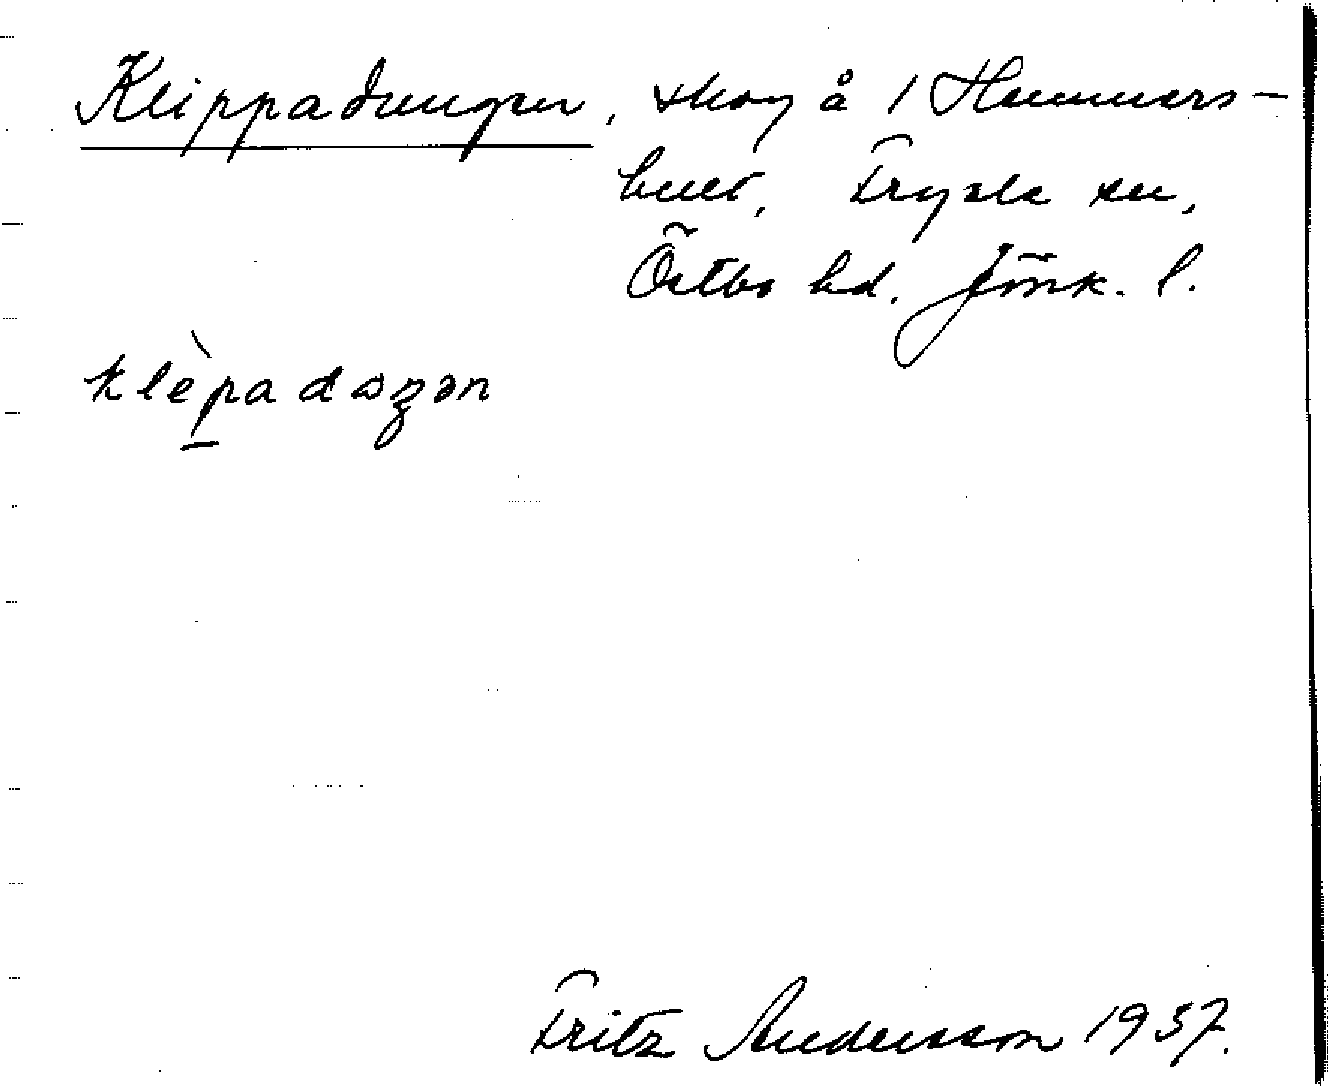 Klippadungen, skog å 1 Hammars-
hult, Fryele sn,
Östbo hd. Jönk. l.
klèpadωŋən
Fritz Andersson 1937.